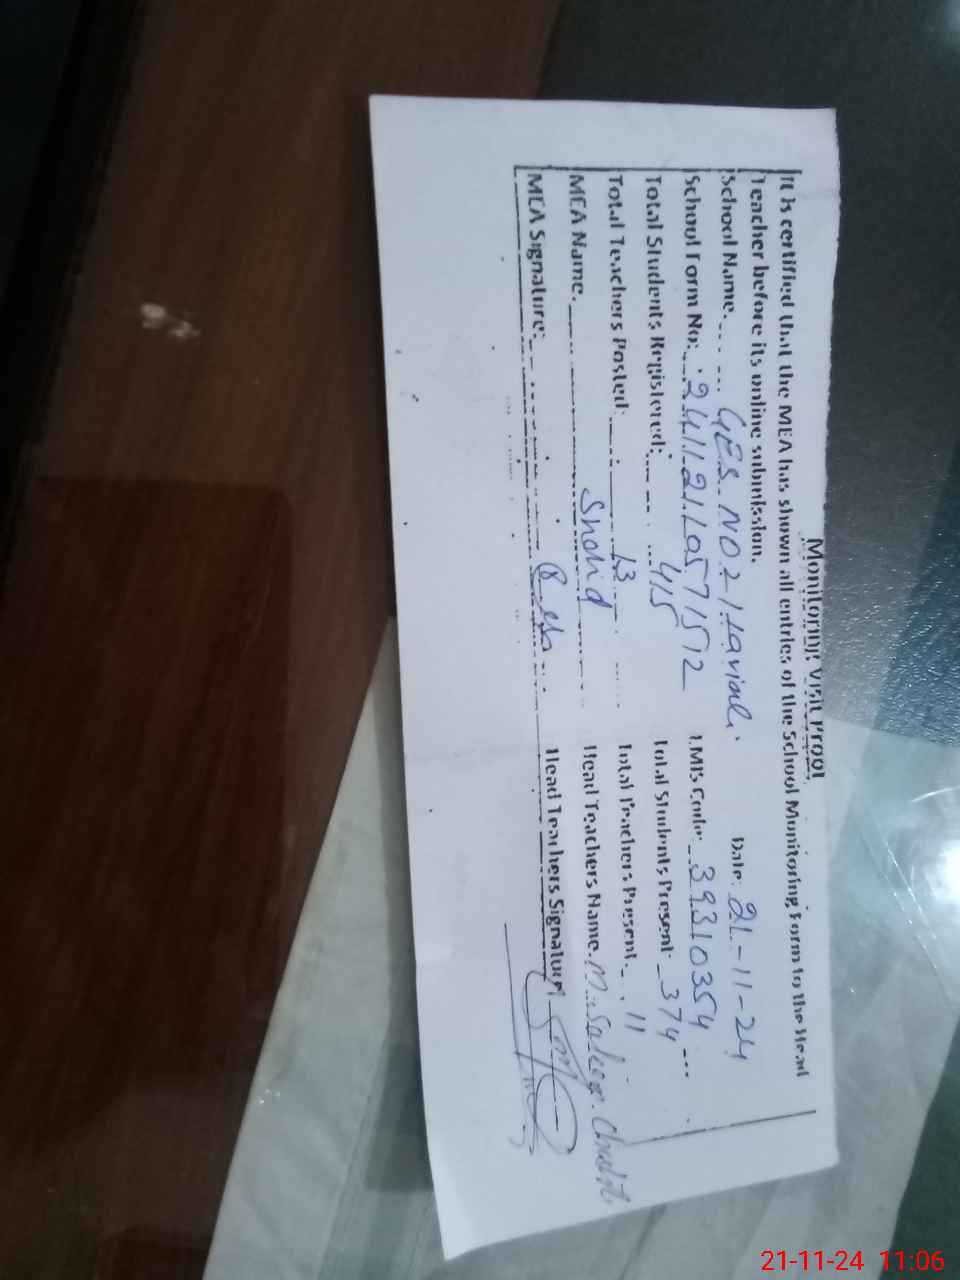 Monitoring Visit Proof
It is certified that the MEA has shown all entries of the School Monitoring Form to the Head
Teacher before its online submission.
Date: 21-11-24
School Name. GES NO 2
School Form No: 241121210571512 EMIS Code: 39310354
Total Students Registered: 415 Total Students Present 374
Total Teachers Posted: 13 Total Teachers Present. 11
MEA Name. Shahid Head Teachers Name. M. Saleem
MEA Signature: Head Teachers Signature
21-11-24 11:06